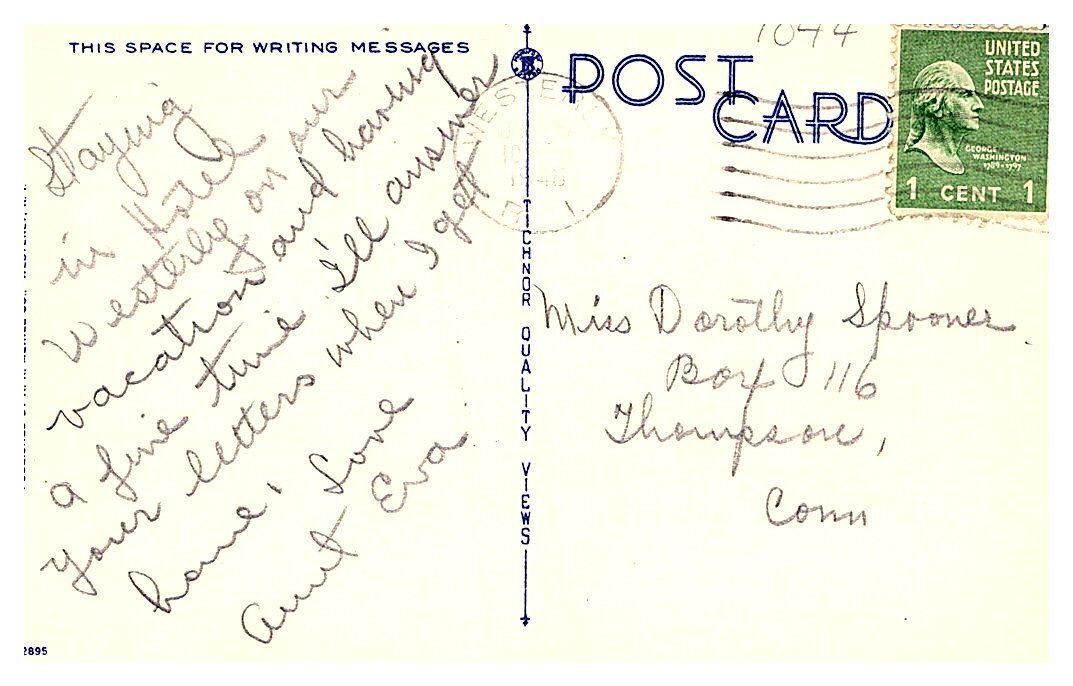 THIS SPACE FOR WRITING MESSAGES
Staying
in Hotel
Westerly on our
vacation and having
a fine time I'll answer
your letters when I get
home. Love
Aunt Eva
2895
TICHNOR QUALITY VIEWS
POST
CARD
1044
WESTERLY
1946
R. I.
UNITED
STATES
POSTAGE
GEORGE
WASHINGTON
1789-1797
1 CENT 1
Miss Dorothy Spooner
Box 116
Thompson,
Conn